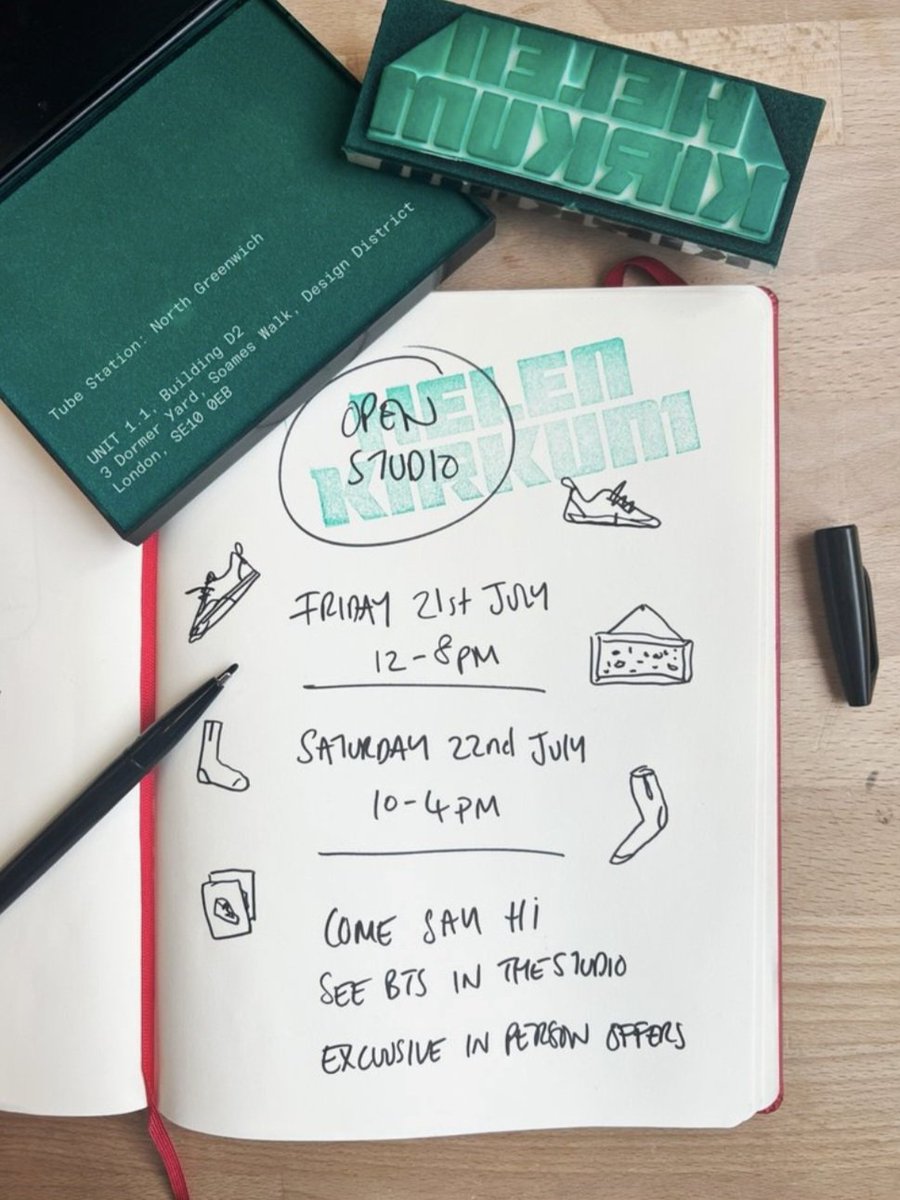 HELEN
KIRKUM
Tube Station: North Greenwich
UNIT 1.1, Building D2
3 Dormer Yard, Soames Walk, Design District
London, SE10 0EB
HELEN
KIRKUM
OPEN
STUDIO
FRIDAY 21st JULY
12-8PM
SATURDAY 22nd JULY
10-4PM
COME SAY Hi
SEE BTS IN THE STUDIO
EXCLUSIVE IN PERSON OFFERS